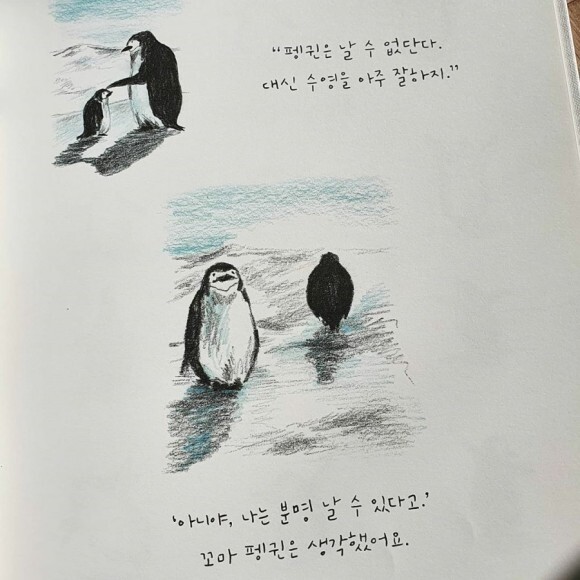 “펭귄은 날 수 없단다.
대신 수영을 아주 잘하지.”
‘아니야, 나는 분명 날 수 있다고.’
꼬마 펭귄은 생각했어요.